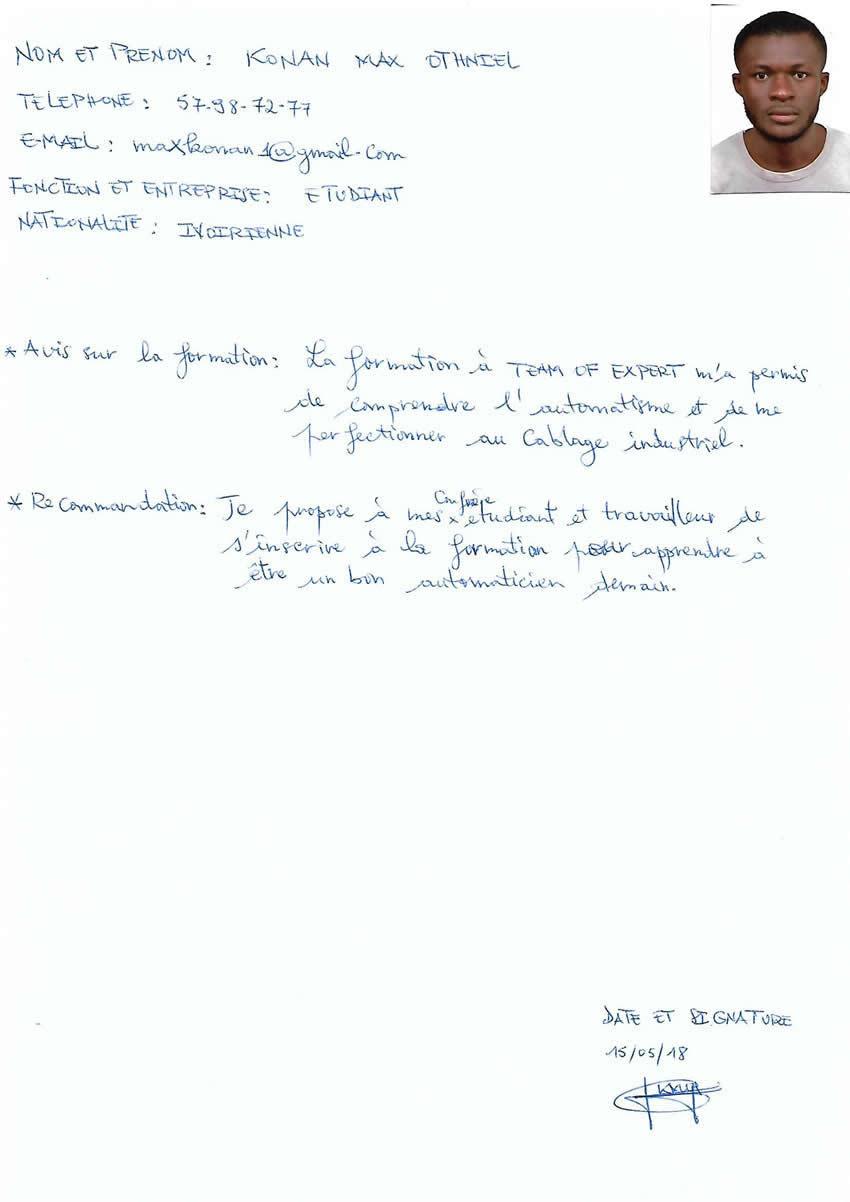 NOM ET PRENOM : KONAN MAX OTHNIEL
TELEPHONE : 57-98-72-77
E-MAIL : maxkonan1@gmail.com
FONCTION ET ENTREPRISE : ETUDIANT
NATIONALITE : IVOIRIENNE
* Avis sur la formation : La formation à TEAM OF EXPERT m'a permis
de comprendre l'automatisme et de me
perfectionner au Cablage industriel.
* Recommandation : Je propose à mes confrère etudiant et travailleur de
s'inscrire à la formation pour apprendre à
être un bon automaticien demain.
DATE ET SIGNATURE
15/05/18